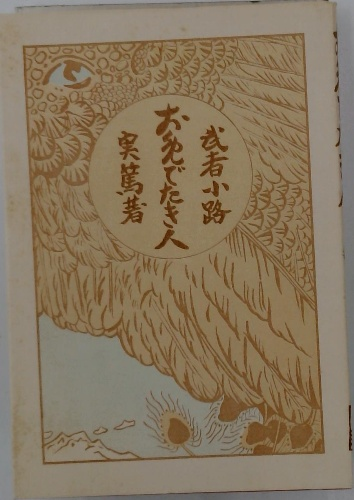 武者小路
お目でたき人
実篤著